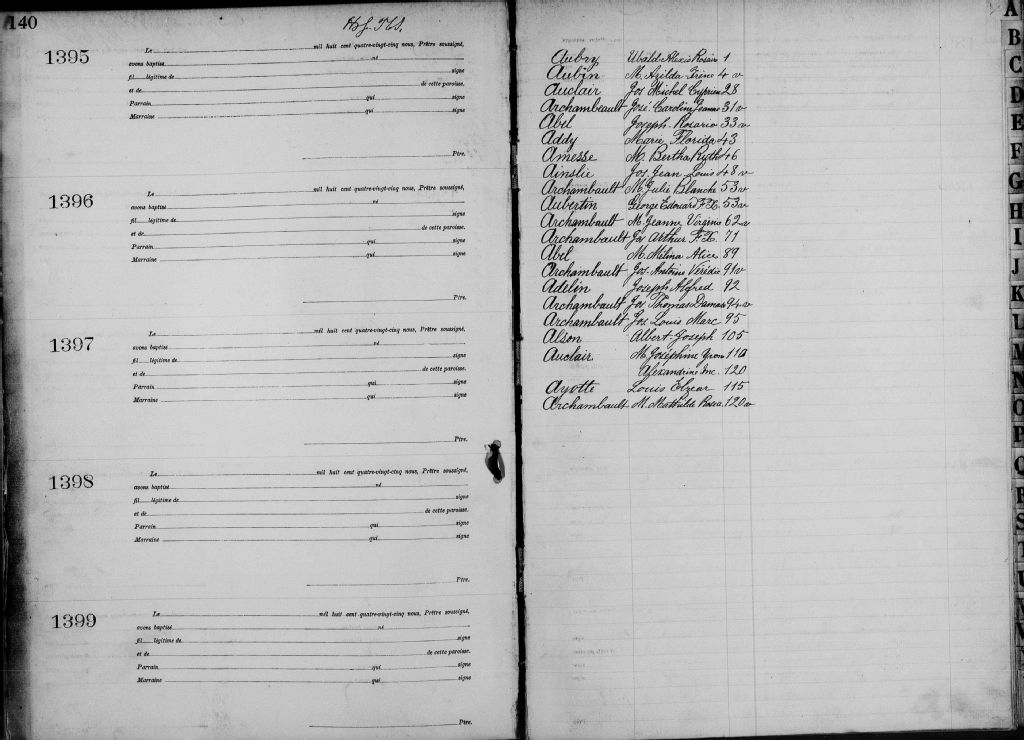 140
1395
Le mil huit cent quatre-vingt-cinq nous, Prêtre soussigné,
avons baptisé né
fil légitime de signe
et de de cette paroisse.
Parrain qui signe
Marraine qui
Ptre.
1396
Le mil huit cent quatre-vingt-cinq nous, Prêtre soussigné,
avons baptisé né
fil légitime de signe
et de de cette paroisse.
Parrain qui signe
Marraine qui
Ptre.
1397
Le mil huit cent quatre-vingt-cinq nous, Prêtre soussigné,
avons baptisé né
fil légitime de signe
et de de cette paroisse.
Parrain qui signe
Marraine qui
Ptre.
1398
Le mil huit cent quatre-vingt-cinq nous, Prêtre soussigné,
avons baptisé né
fil légitime de signe
et de de cette paroisse.
Parrain qui signe
Marraine qui signe
Ptre.
1399
Le mil huit cent quatre-vingt-cinq nous, Prêtre soussigné,
avons baptisé né
fil légitime de signe
et de de cette paroisse.
Parrain qui signe
Marraine qui signe
Ptre.
Aubry Ubald Alexis Rosair 1
Aubin M. Azilda Irène 4 v
Auclair Jos Michel Cyprien 28
Archambault José Caroline Jeanne 31 v
Abel Joseph-Rosario 33 v
Addy Marie Florida 43
Amesse M. Bertha Ruth 46
Ainslie Jos Jean Louis 48 v
Archambault M. Julie Blanche 53 v
Aubertin George Edouard F. X. 53 v
Archambault M. Jeanne Virginie 62 v
Archambault Jos Arthur F. X. 71
Abel M. Mélina Alice 89
Archambault Jos. Antoine Véridic 91 v
Adelin Joseph Alfred 92
Archambault Jos Thomas Damase 94 v
Archambault Jos Louis Marc 95
Alson Albert-Joseph 105
Auclair M. Joséphine 110
Alexandrine 120
Ayotte Louis Elzear 115
Archambault M. Mathilde Rosea 120 v
A
B
C
D
E
F
G
H
I
J
K
L
M
N
O
P
Q
R
S
T
U
V